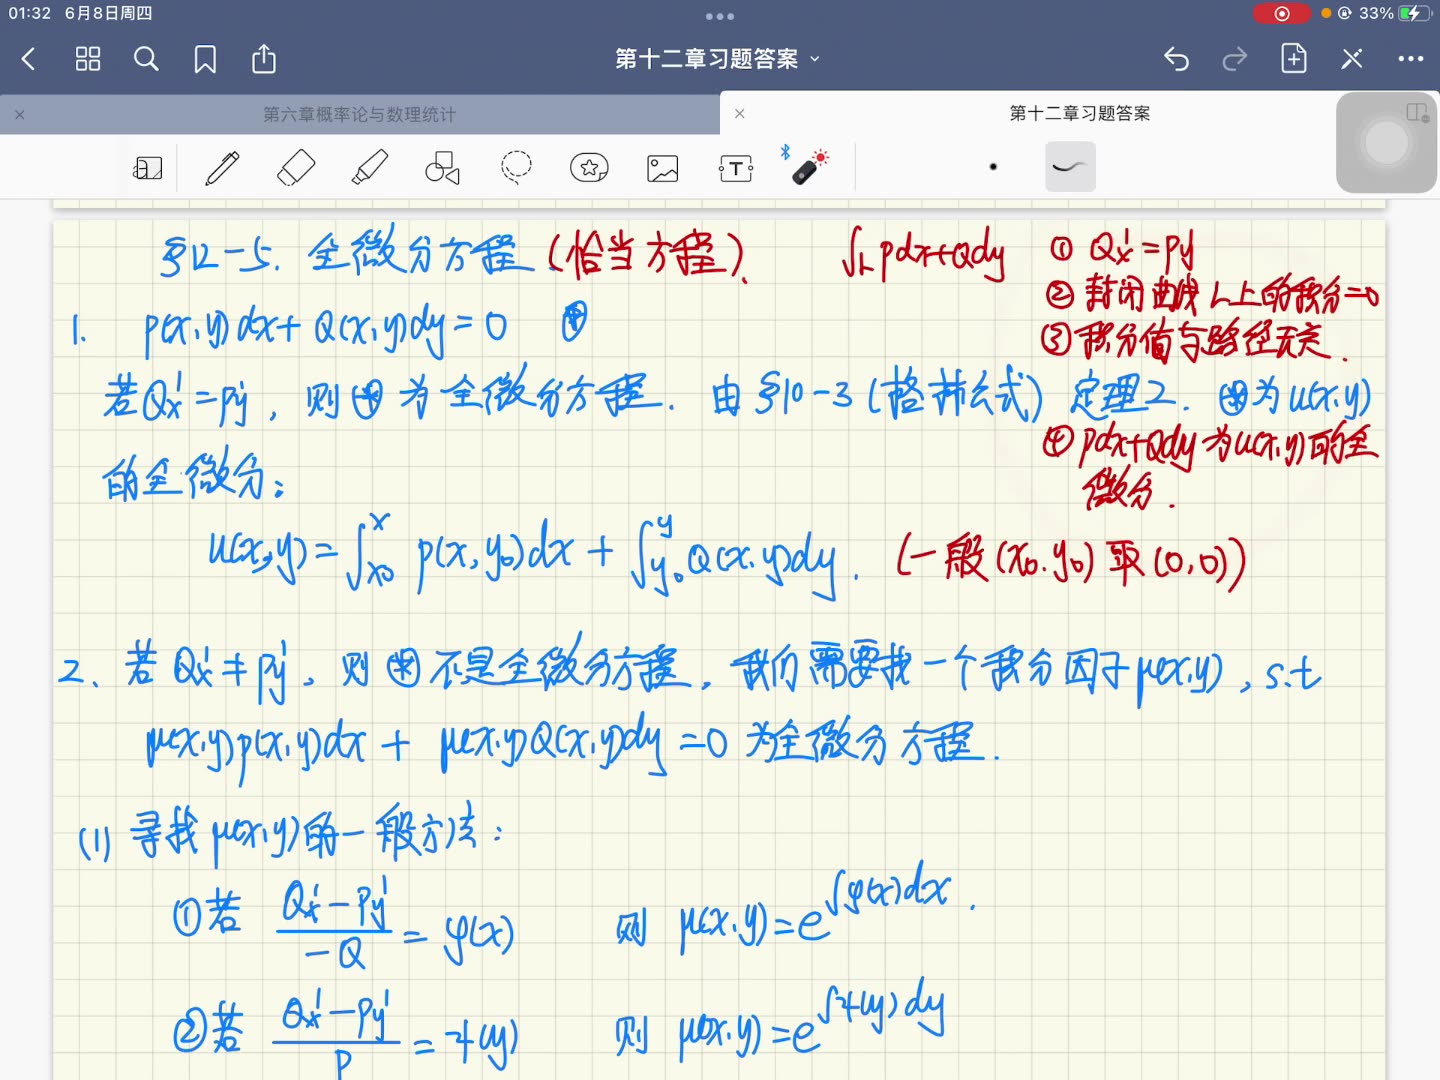 01:32 6月8日周四
33%
第十二章习题答案
第六章概率论与数理统计
第十二章习题答案
§12-5. 全微分方程 (恰当方程).
∫L pdx+Qdy ① Qx'=Py'
② 封闭曲线L上的积分=0
③ 积分值与路径无关.
1. P(x,y)dx+Q(x,y)dy=0 ⊛
若Qx'=Py', 则⊛为全微分方程. 由§10-3(格林公式)定理2. ⊛为u(x,y)
的全微分:
④ pdx+Qdy为u(x,y)的全
微分.
u(x,y)=∫_{x0}^{x} P(x,y0)dx+∫_{y0}^{y} Q(x,y)dy. (一般(x0,y0)取(0,0))
2. 若Qx'≠Py', 则⊛不是全微分方程, 我们需要找一个积分因子μ(x,y), s.t
μ(x,y)p(x,y)dx+μ(x,y)Q(x,y)dy=0 为全微分方程.
(1) 寻找μ(x,y)的一般方法:
①若 (Qx'-Py')/(-Q)=φ(x) 则 μ(x,y)=e^{∫φ(x)dx}.
②若 (Qx'-Py')/P=ψ(y) 则 μ(x,y)=e^{∫ψ(y)dy}